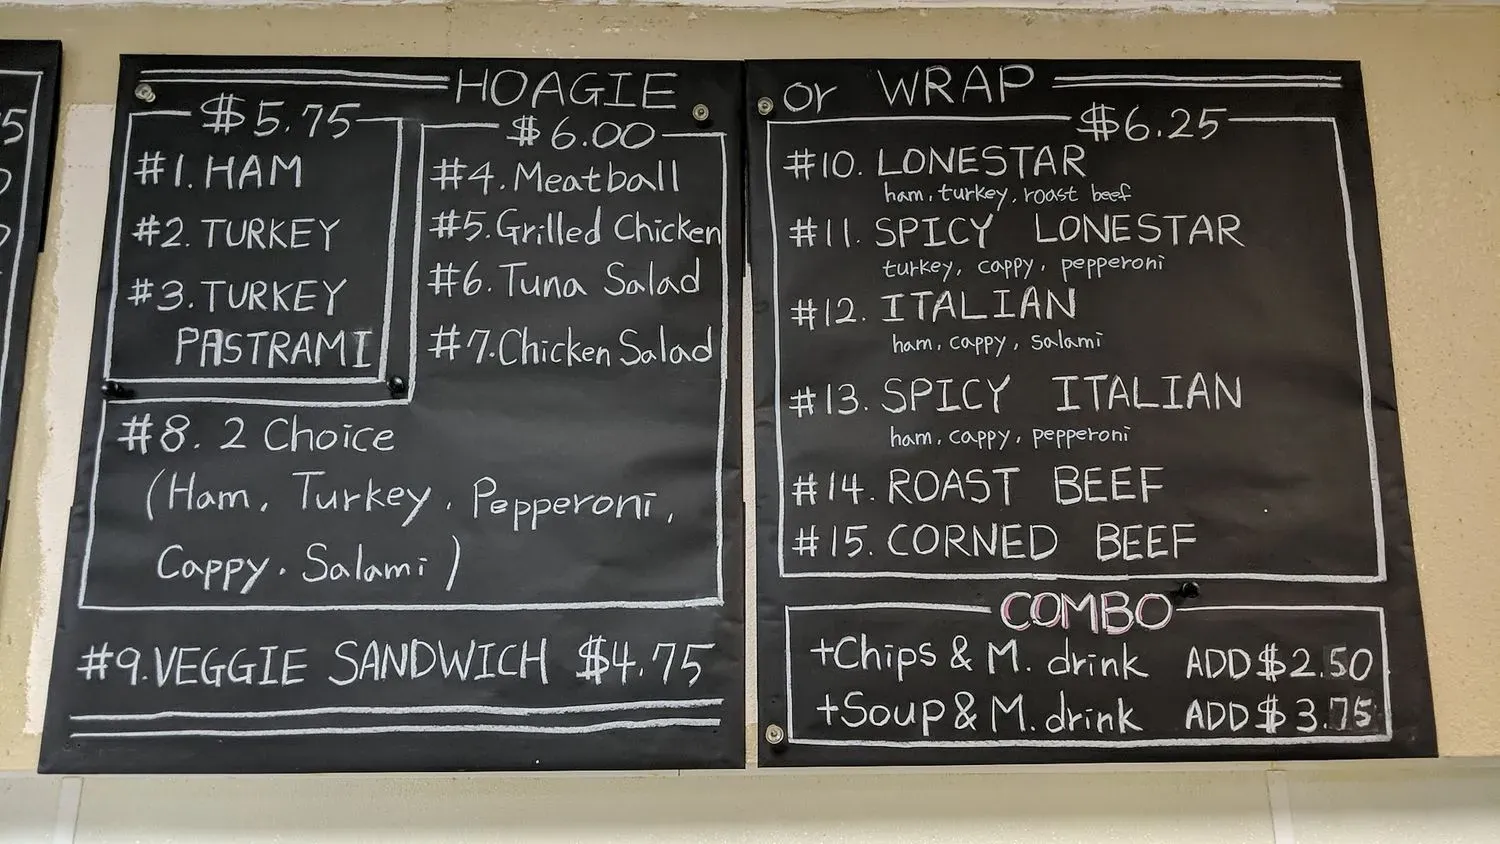 HOAGIE or WRAP
$5.75
#1. HAM
#2. TURKEY
#3. TURKEY
PASTRAMI
$6.00
#4. Meatball
#5. Grilled Chicken
#6. Tuna Salad
#7. Chicken Salad
#8. 2 Choice
(Ham, Turkey, Pepperoni,
Cappy, Salami)
#9. VEGGIE SANDWICH $4.75
$6.25
#10. LONESTAR
ham, turkey, roast beef
#11. SPICY LONESTAR
turkey, cappy, pepperoni
#12. ITALIAN
ham, cappy, salami
#13. SPICY ITALIAN
ham, cappy, pepperoni
#14. ROAST BEEF
#15. CORNED BEEF
COMBO
+Chips & M. drink ADD $2.50
+Soup & M. drink ADD $3.75